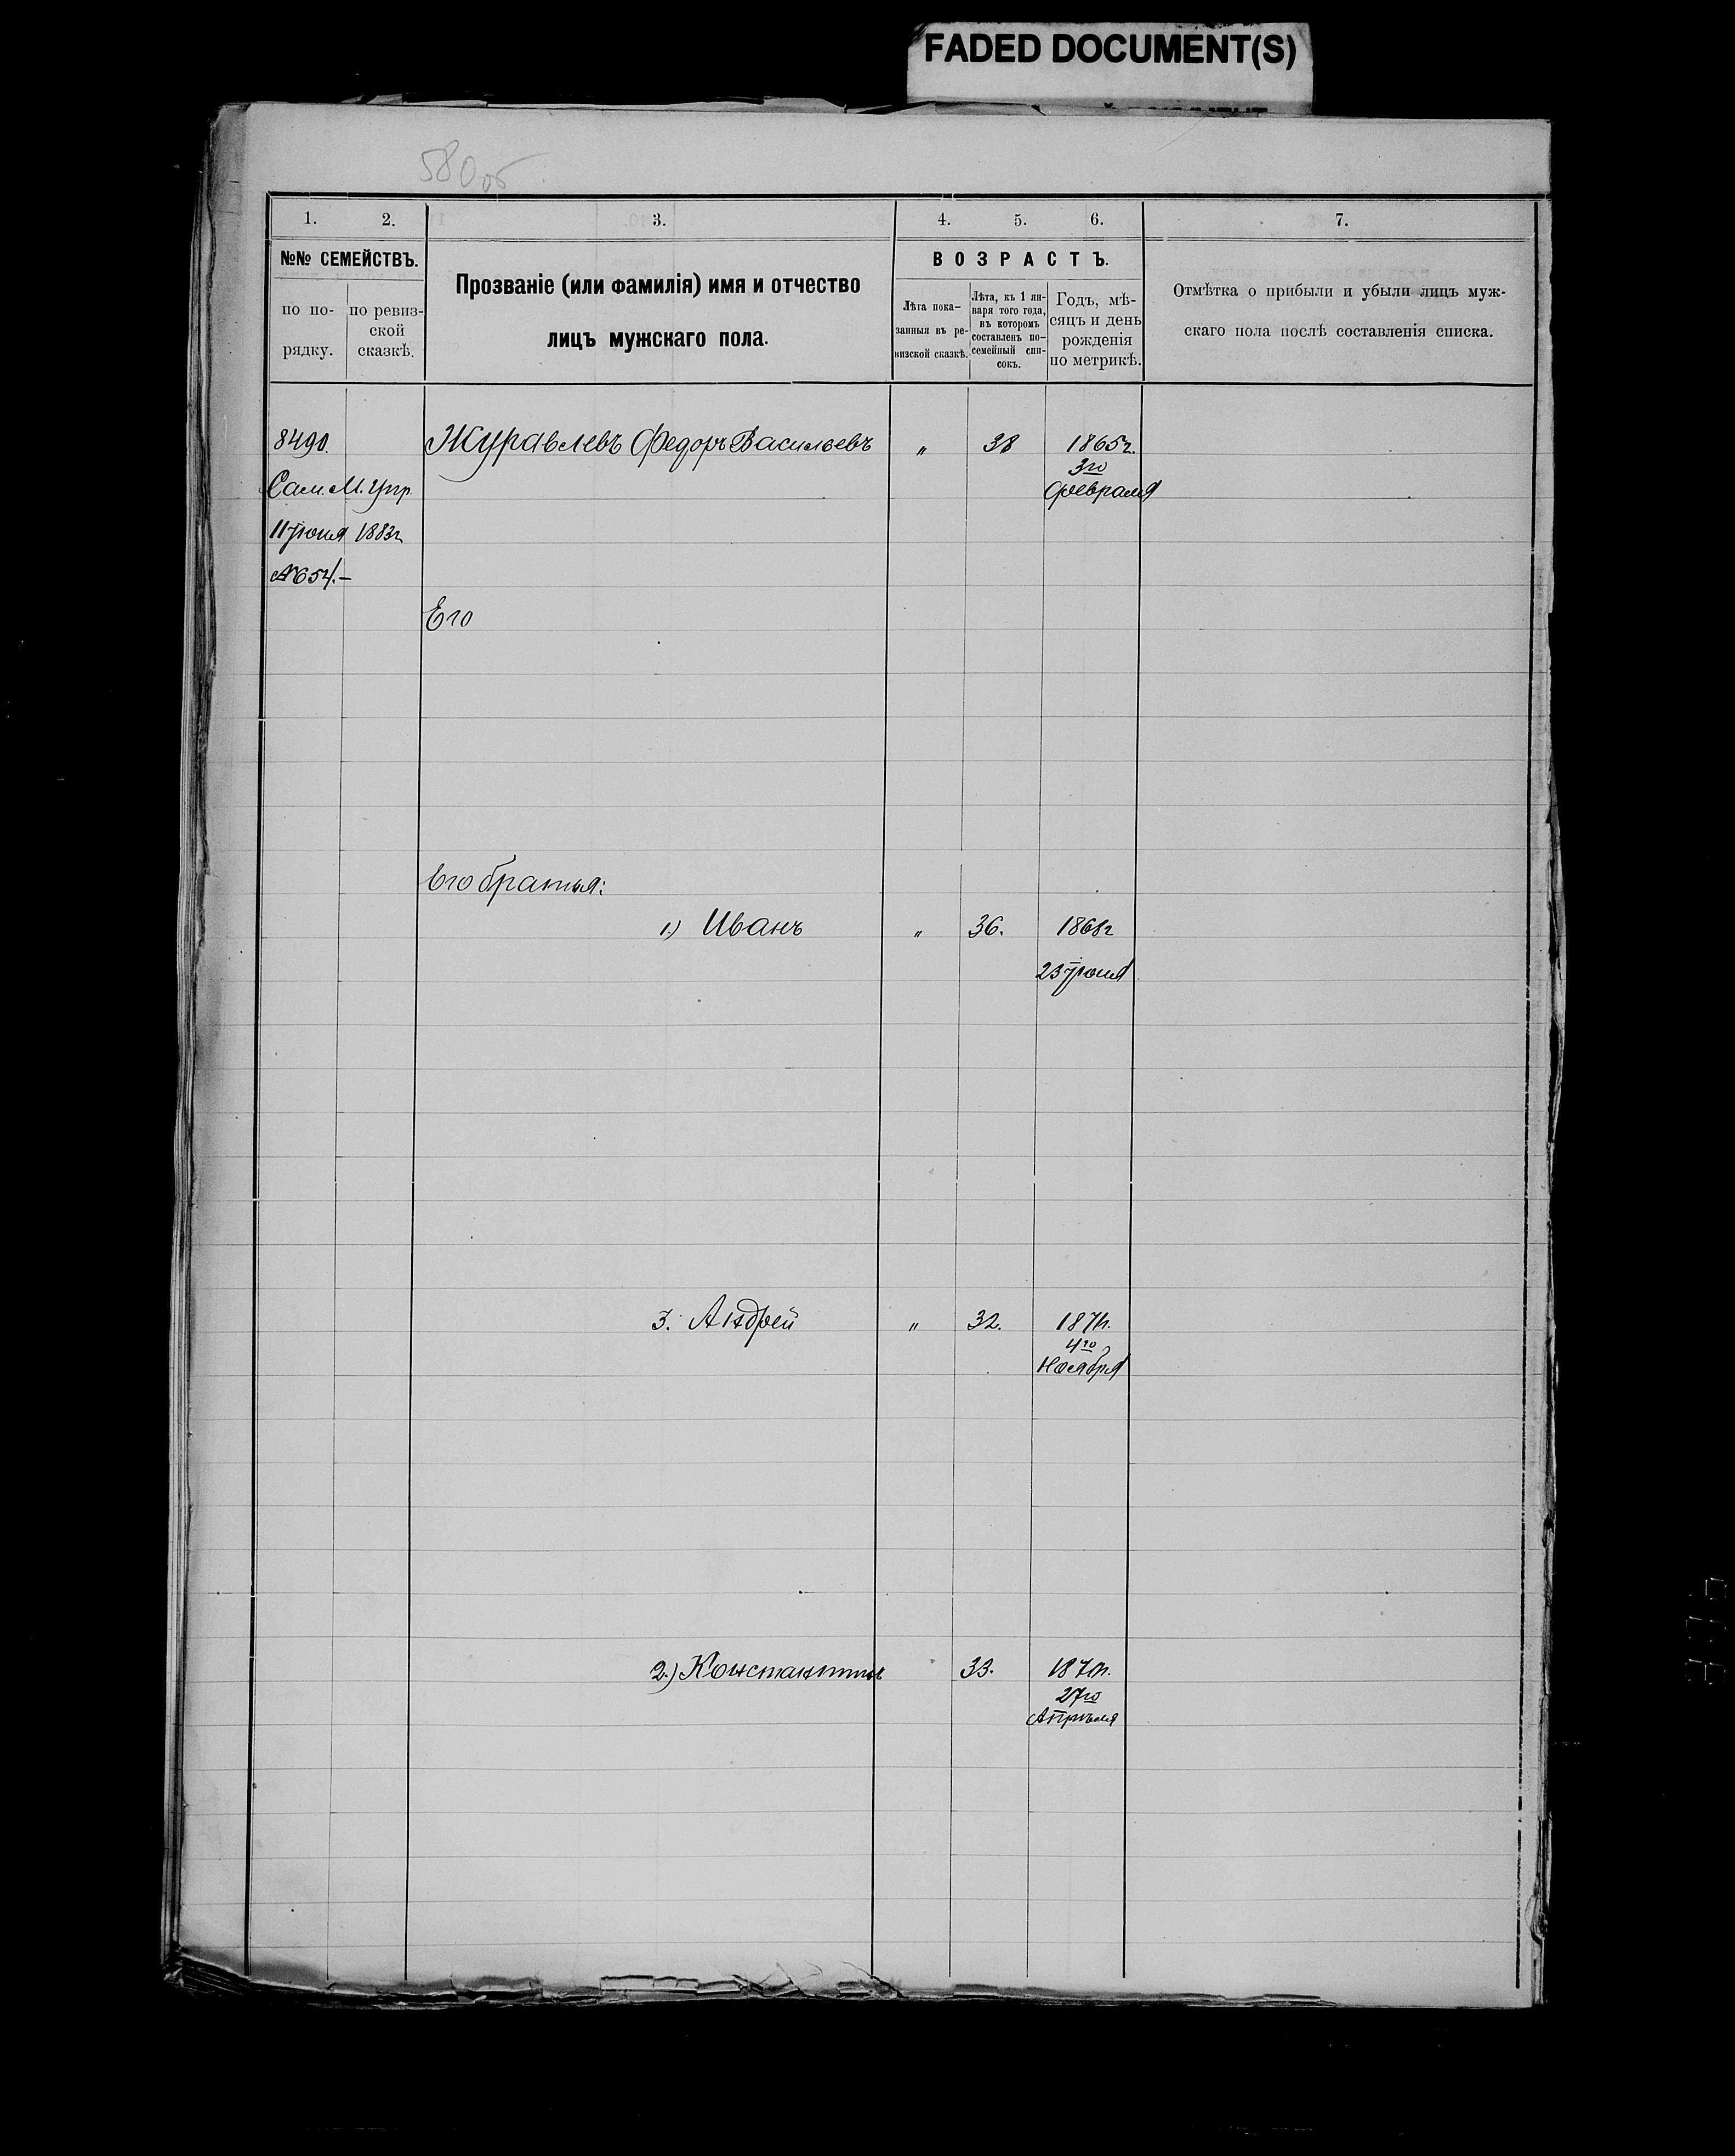 FADED DOCUMENT(S)
580об
1. 2. 3. 4. 5. 6. 7.
№№ СЕМЕЙСТВЪ.
по по-
рядку.
по ревиз-
ской
сказкѣ.
Прозваніе (или фамилія) имя и отчество
лицъ мужскаго пола.
ВОЗРАСТЪ.
Лѣта пока-
занныя въ ре-
визской сказкѣ.
Лѣта, къ 1 ян-
варя того года,
въ которомъ
составленъ по-
семейный спи-
сокъ.
Годъ, мѣ-
сяцъ и день
рожденія
по метрикѣ.
Отмѣтка о прибыли и убыли лицъ муж-
скаго пола послѣ составленія списка.
8490. Журавлевъ Федоръ Васильевъ " 38 1865г.
3го
Сам. М. Упр. февраля
11 Іюня 1883г
№654.—
Его
Его братья:
1.) Иванъ " 36. 1868г
23 Іюня
3. Андрей " 32. 1871г.
4го
Ноября
2.) Константинъ 33. 1870г.
27го
Апрѣля